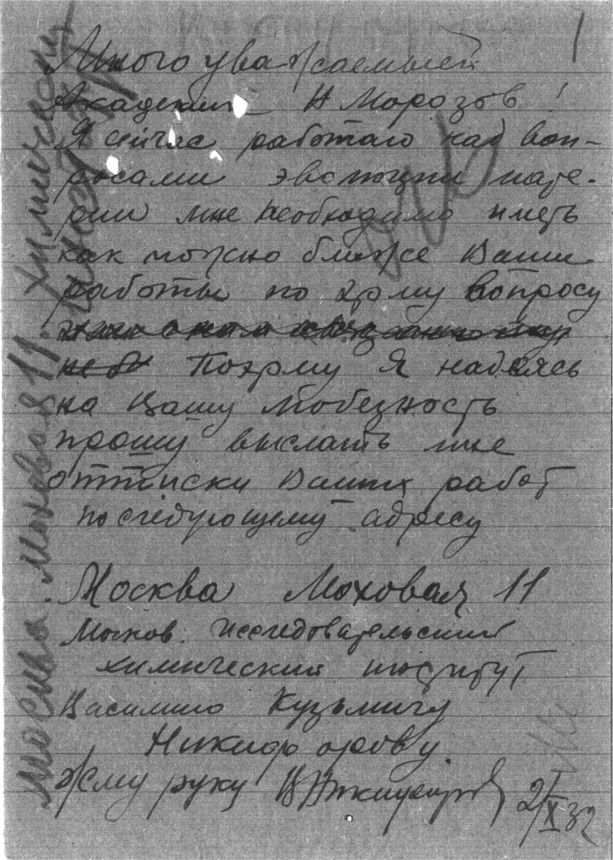 Много уважаемый
Академик Н Морозов!
Я сейчас работаю над воп-
росами эволюции мате-
рии мне необходимо иметь
как можно ближе Ваши
работы по эт̄ому вопросу
Поэтому Я надеясь
на Вашу любезность
прошу выслать мне
оттиски Ваших работ
последующему адресу
Москва Моховая 11
Москов. исследовательский
химический институт
Василию Кузьмичу
Никифорову
Жму руку ВНикифоров 2/X 32
Москва. Моховая 11. химический
институт